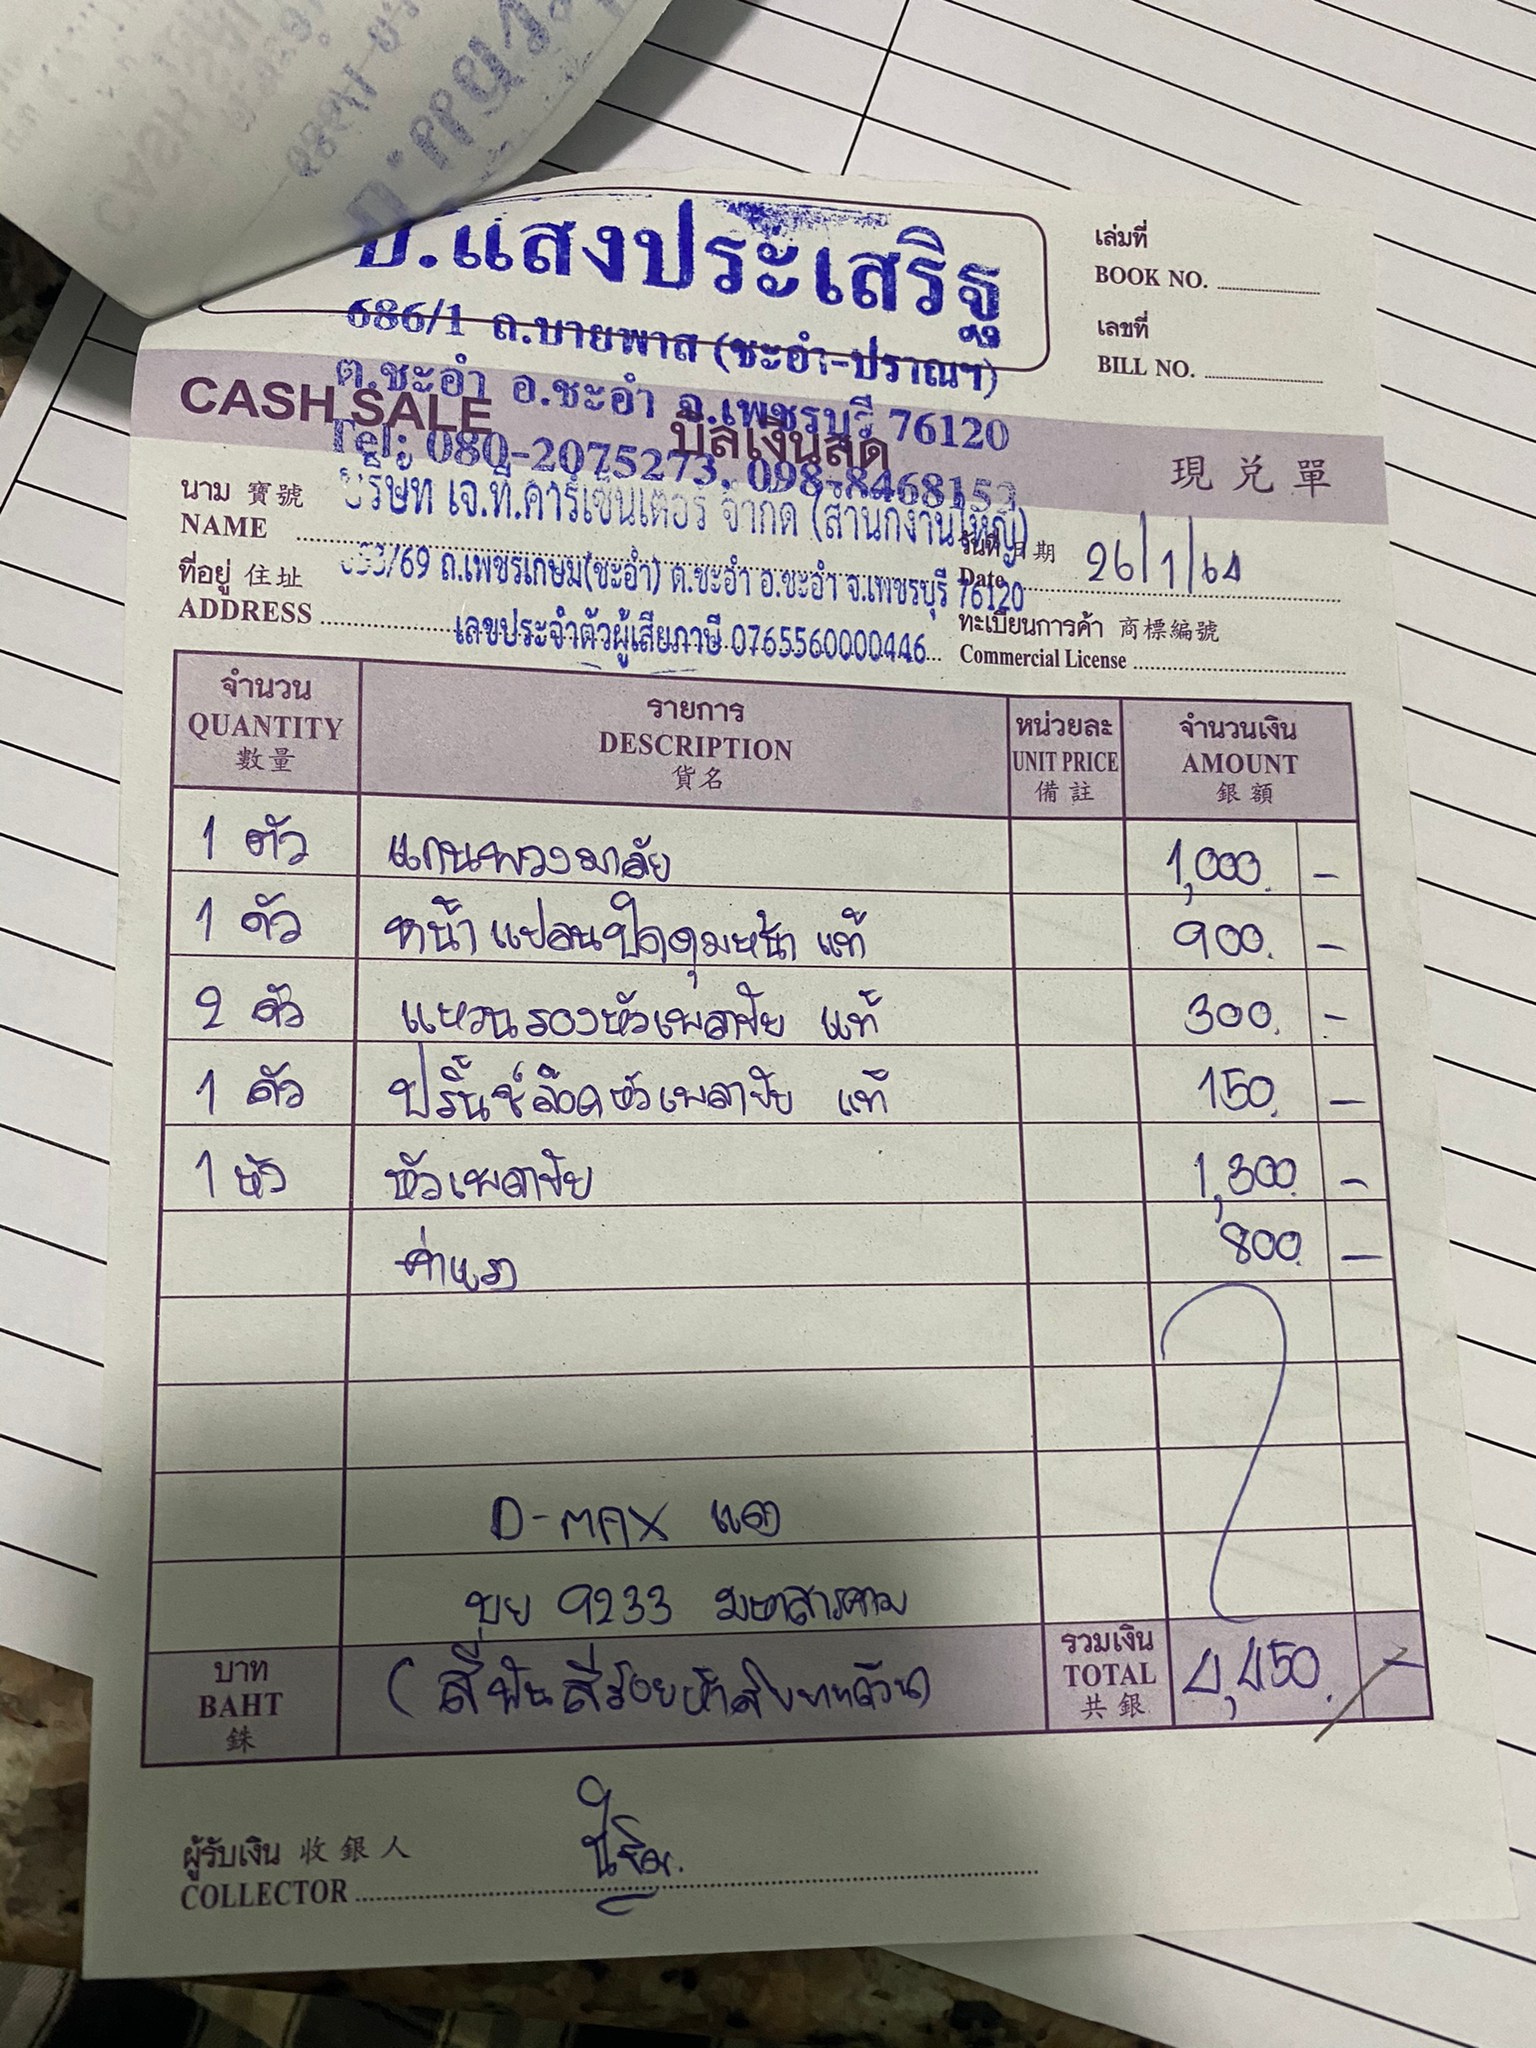 ป.แสงประเสริฐ
686/1 ถ.บายพาส (ชะอำ-ปราณฯ)
ต.ชะอำ อ.ชะอำ จ.เพชรบุรี 76120
Tel: 080-2075273, 098-8468153
เล่มที่
BOOK NO.
เลขที่
BILL NO.
CASH SALE บิลเงินสด 現兑單
นาม 寶號
NAME
บริษัท เจ.ที.คาร์เซ็นเตอร์ จำกัด (สำนักงานใหญ่)
วันที่ 日期
Date 26/1/64
ที่อยู่ 住址
ADDRESS
/69 ถ.เพชรเกษม(ชะอำ) ต.ชะอำ อ.ชะอำ จ.เพชรบุรี 76120
เลขประจำตัวผู้เสียภาษี 0765560000446
ทะเบียนการค้า 商標編號
Commercial License
จำนวน รายการ หน่วยละ จำนวนเงิน
QUANTITY DESCRIPTION UNIT PRICE AMOUNT
數量 貨名 備註 銀額
1 ตัว แกนพวงมาลัย 1,000. -
1 ตัว หน้าแปลนปิดดุมหน้า แท้ 900. -
2 ตัว แหวนรองหัวเพลาขับ แท้ 300. -
1 ตัว ปริ้นซ์ล๊อคหัวเพลาขับ แท้ 150. -
1 หัว หัวเพลาขับ 1,300. -
ค่าแรง 800. -
D-MAX แดง
9233 มหาสารคาม
บาท รวมเงิน
BAHT (สี่พันสี่ร้อยห้าสิบบาทถ้วน) TOTAL 4,450. -
銖 共銀
ผู้รับเงิน 收銀人
COLLECTOR